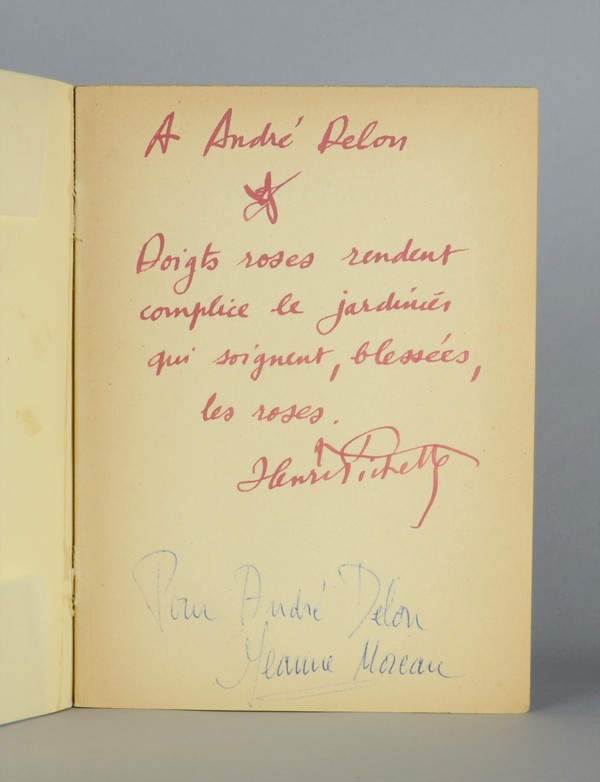 A André Delon
Doigts roses rendent
complice le jardinier
qui soignent, blessées,
les roses.
Henri Pichette
Pour André Delon
Jeanne Moreau